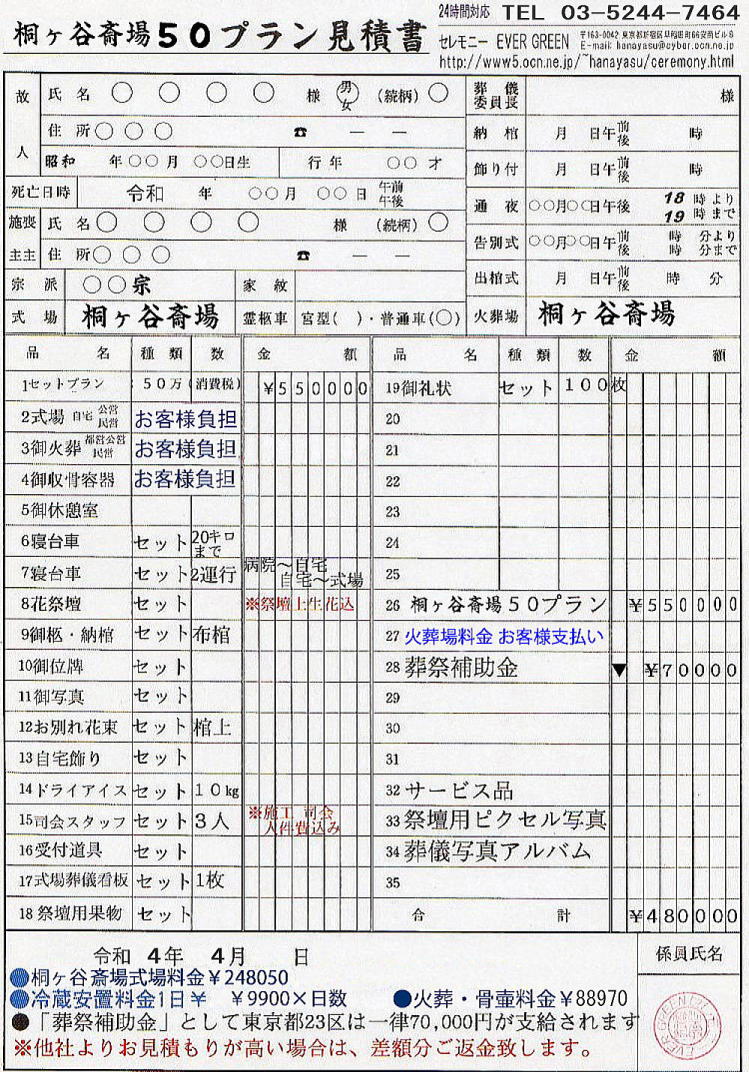 24時間対応 TEL 03-5244-7464
桐ヶ谷斎場50プラン見積書
セレモニー EVER GREEN
〒163-0042 東京都新宿区早稲田町66安苗ビル8
E-mail: hanayasu@cyber.ocn.ne.jp
http://www5.ocn.ne.jp/~hanayasu/ceremony.html
故人 氏名 ○ ○ ○ ○ 様 男女 (続柄) ○
住所 ○ ○ ○ ☎ ― ―
昭和 年○○月 ○○日生 行年 ○○才
死亡日時 令和 年 ○○月 ○○日 午前午後
施喪 氏名 ○ ○ ○ ○ 様 (続柄) ○
主主 住所 ○ ○ ○ ☎ ― ―
宗派 ○○宗 家紋
式場 桐ヶ谷斎場 霊柩車 宮型( )・普通車(○)
葬儀委員長 様
納棺 月 日午前後 時
飾り付 月 日午前後 時
通夜 ○○月○○日午後 18時より 19時まで
告別式 ○○月○○日午前後 時 分より 時 分まで
出棺式 月 日午前後 時 分
火葬場 桐ヶ谷斎場
品名 種類 数 金額
1セットプラン 50万 (消費税) ¥550000
2式場 自宅 公営民営 お客様負担
3御火葬 都営公営民営 お客様負担
4御収骨容器 お客様負担
5御休憩室
6寝台車 セット 20キロまで
7寝台車 セット 2運行 病院～自宅 自宅～式場
8花祭壇 セット ※祭壇上生花込
9御柩・納棺 セット 布棺
10御位牌 セット
11御写真 セット
12お別れ花束 セット 棺上
13自宅飾り セット
14ドライアイス セット 10kg
15司会スタッフ セット 3人 ※施工 司会 人件費込み
16受付道具 セット
17式場葬儀看板 セット 1枚
18祭壇用果物 セット
品名 種類 数 金額
19御礼状 セット 100枚
20
21
22
23
24
25
26 桐ヶ谷斎場50プラン ¥550000
27 火葬場料金 お客様支払い
28 葬祭補助金 ▼ ¥70000
29
30
31
32 サービス品
33 祭壇用ピクセル写真
34 葬儀写真アルバム
35
合計 ¥480000
令和 4年 4月 日
係員氏名
●桐ヶ谷斎場式場料金¥248050
●冷蔵安置料金1日¥ ¥9900×日数 ●火葬・骨壷料金¥88970
●「葬祭補助金」として東京都23区は一律70,000円が支給されます
※他社よりお見積もりが高い場合は、差額分ご返金致します。